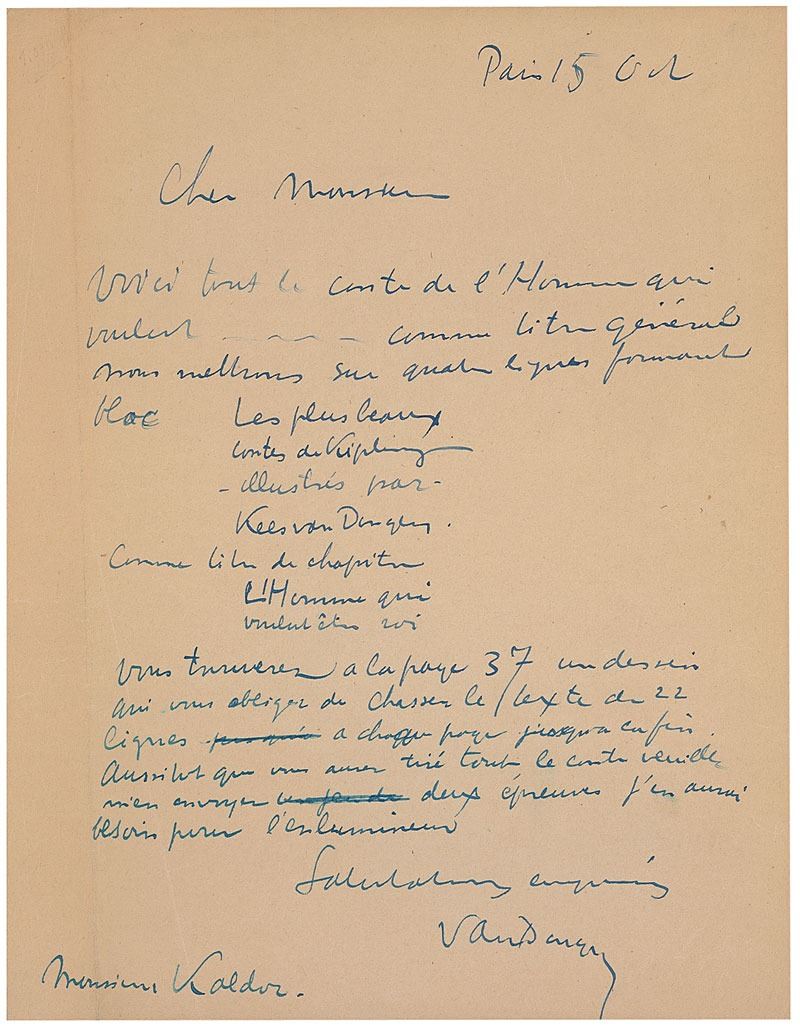 Paris 15 Oct
Cher Monsieur
Voici tout le conte de l'Homme qui
voulut - - - - comme titre général
nous mettrons sur quatre lignes formant
bloc Les plus beaux
contes de Kipling
- illustrés par -
Kees van Dongen.
Comme titre de chapitre
L'Homme qui
voulut être roi
Vous trouverez a la page 37 un dessin
qui vous oblige de chasser le texte de 22
lignes a chaque page jusqu'a la fin.
Aussitot que vous aurez tiré tout le conte veuillez
m'en envoyer deux épreuves j'en aurai
besoin pour l'enlumineur
Salutations
Van Dongen
Monsieur Kaldor.